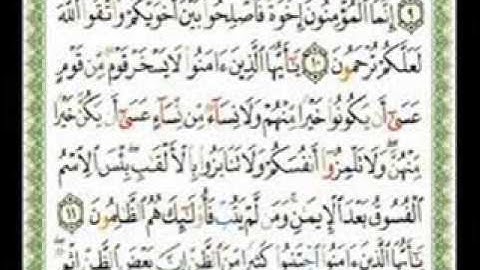 ٩ إِنَّمَا ٱلْمُؤْمِنُونَ إِخْوَةٌ فَأَصْلِحُوا۟ بَيْنَ أَخَوَيْكُمْ وَٱتَّقُوا۟ ٱللَّهَ
لَعَلَّكُمْ تُرْحَمُونَ ١٠ يَـٰٓأَيُّهَا ٱلَّذِينَ ءَامَنُوا۟ لَا يَسْخَرْ قَوْمٌ مِّن قَوْمٍ
عَسَىٰٓ أَن يَكُونُوا۟ خَيْرًا مِّنْهُمْ وَلَا نِسَآءٌ مِّن نِّسَآءٍ عَسَىٰٓ أَن يَكُنَّ خَيْرًا
مِّنْهُنَّ ۖ وَلَا تَلْمِزُوٓا۟ أَنفُسَكُمْ وَلَا تَنَابَزُوا۟ بِٱلْأَلْقَـٰبِ ۖ بِئْسَ ٱلِٱسْمُ
ٱلْفُسُوقُ بَعْدَ ٱلْإِيمَـٰنِ ۚ وَمَن لَّمْ يَتُبْ فَأُو۟لَـٰٓئِكَ هُمُ ٱلظَّـٰلِمُونَ ١١
يَـٰٓأَيُّهَا ٱلَّذِينَ ءَامَنُوا۟ ٱجْتَنِبُوا۟ كَثِيرًا مِّنَ ٱلظَّنِّ إِنَّ بَعْضَ ٱلظَّنِّ إِثْمٌ ۖ